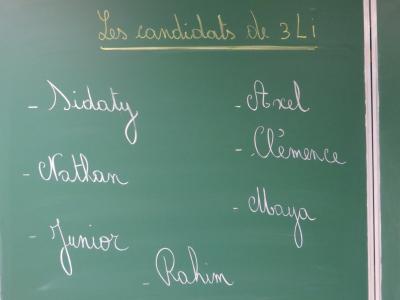 Les candidats de 3Li
- Sidaty
- Axel
- Clémence
- Nathan
- Maya
- Junior
- Rahim